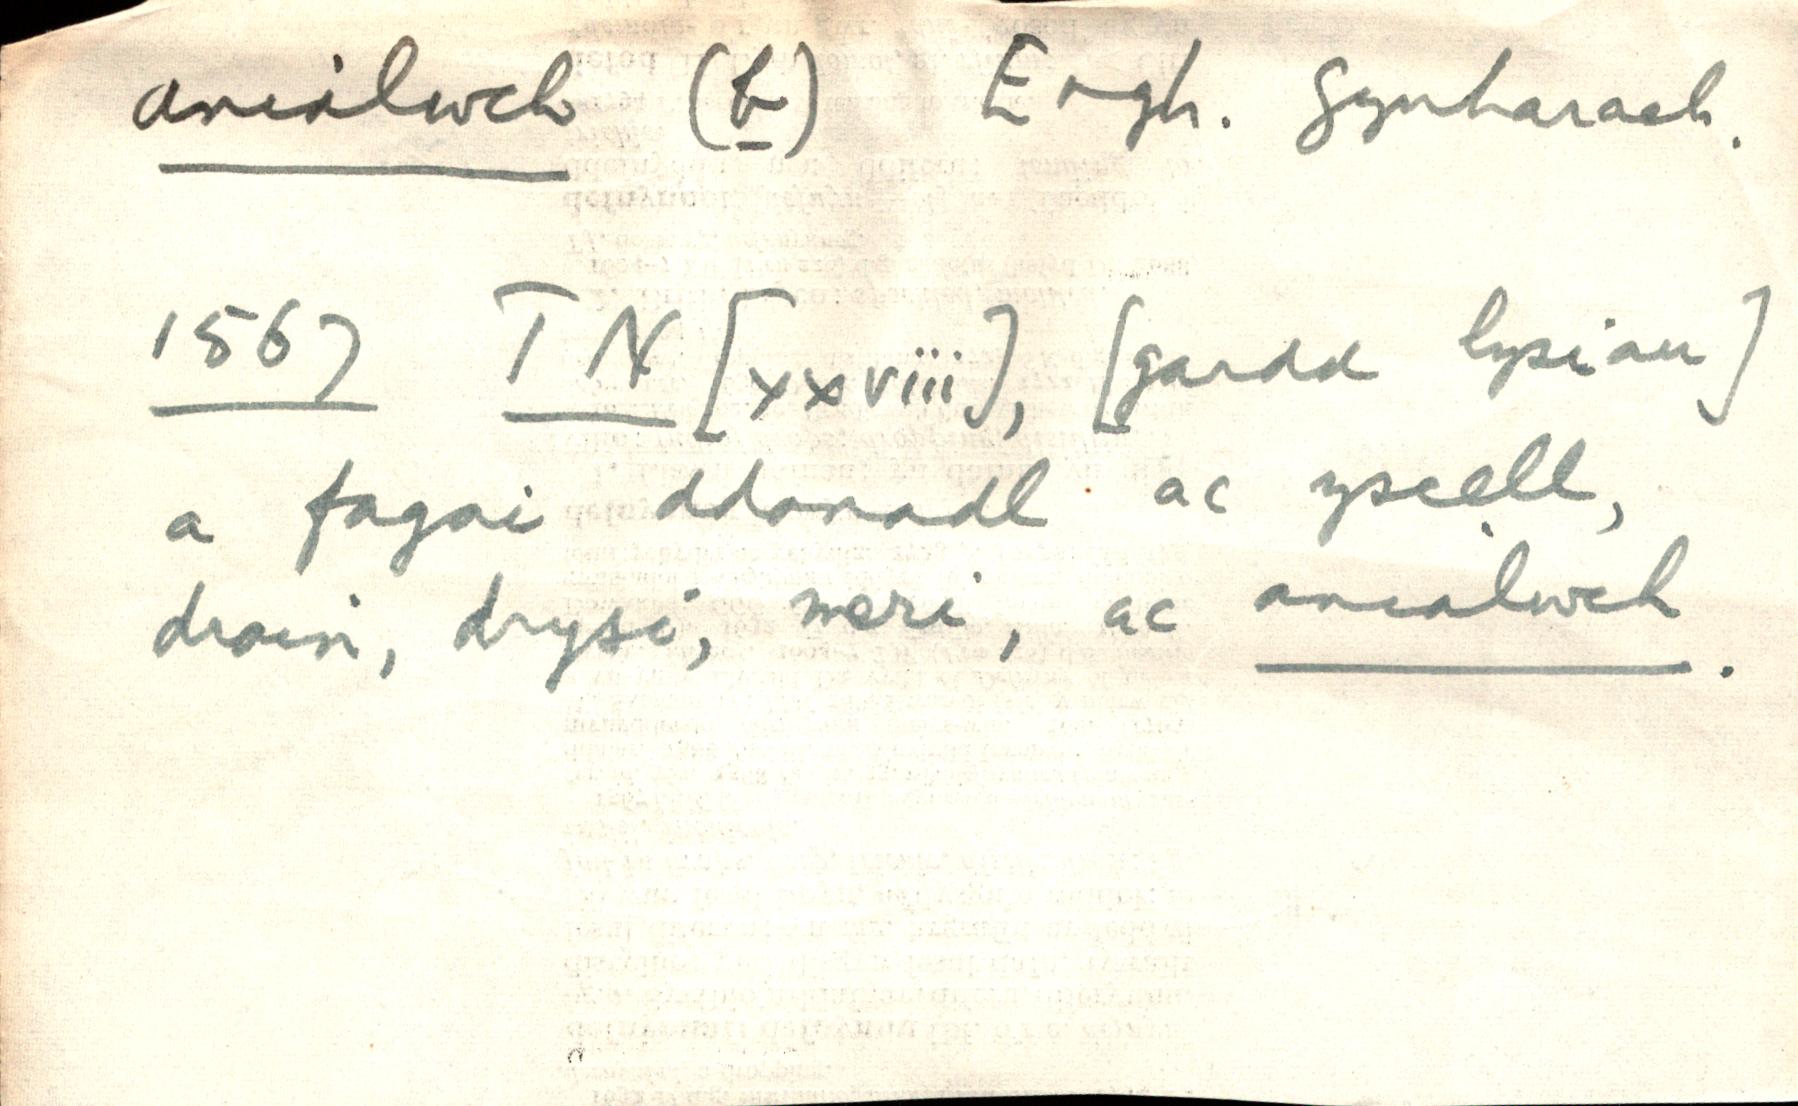 anialwch (b) Engh. gynharach.
1567 TN [xxviii], [gardd lysiau]
a fagai ddanadl ac yscell,
drain, drysi, meri, ac anialwch.